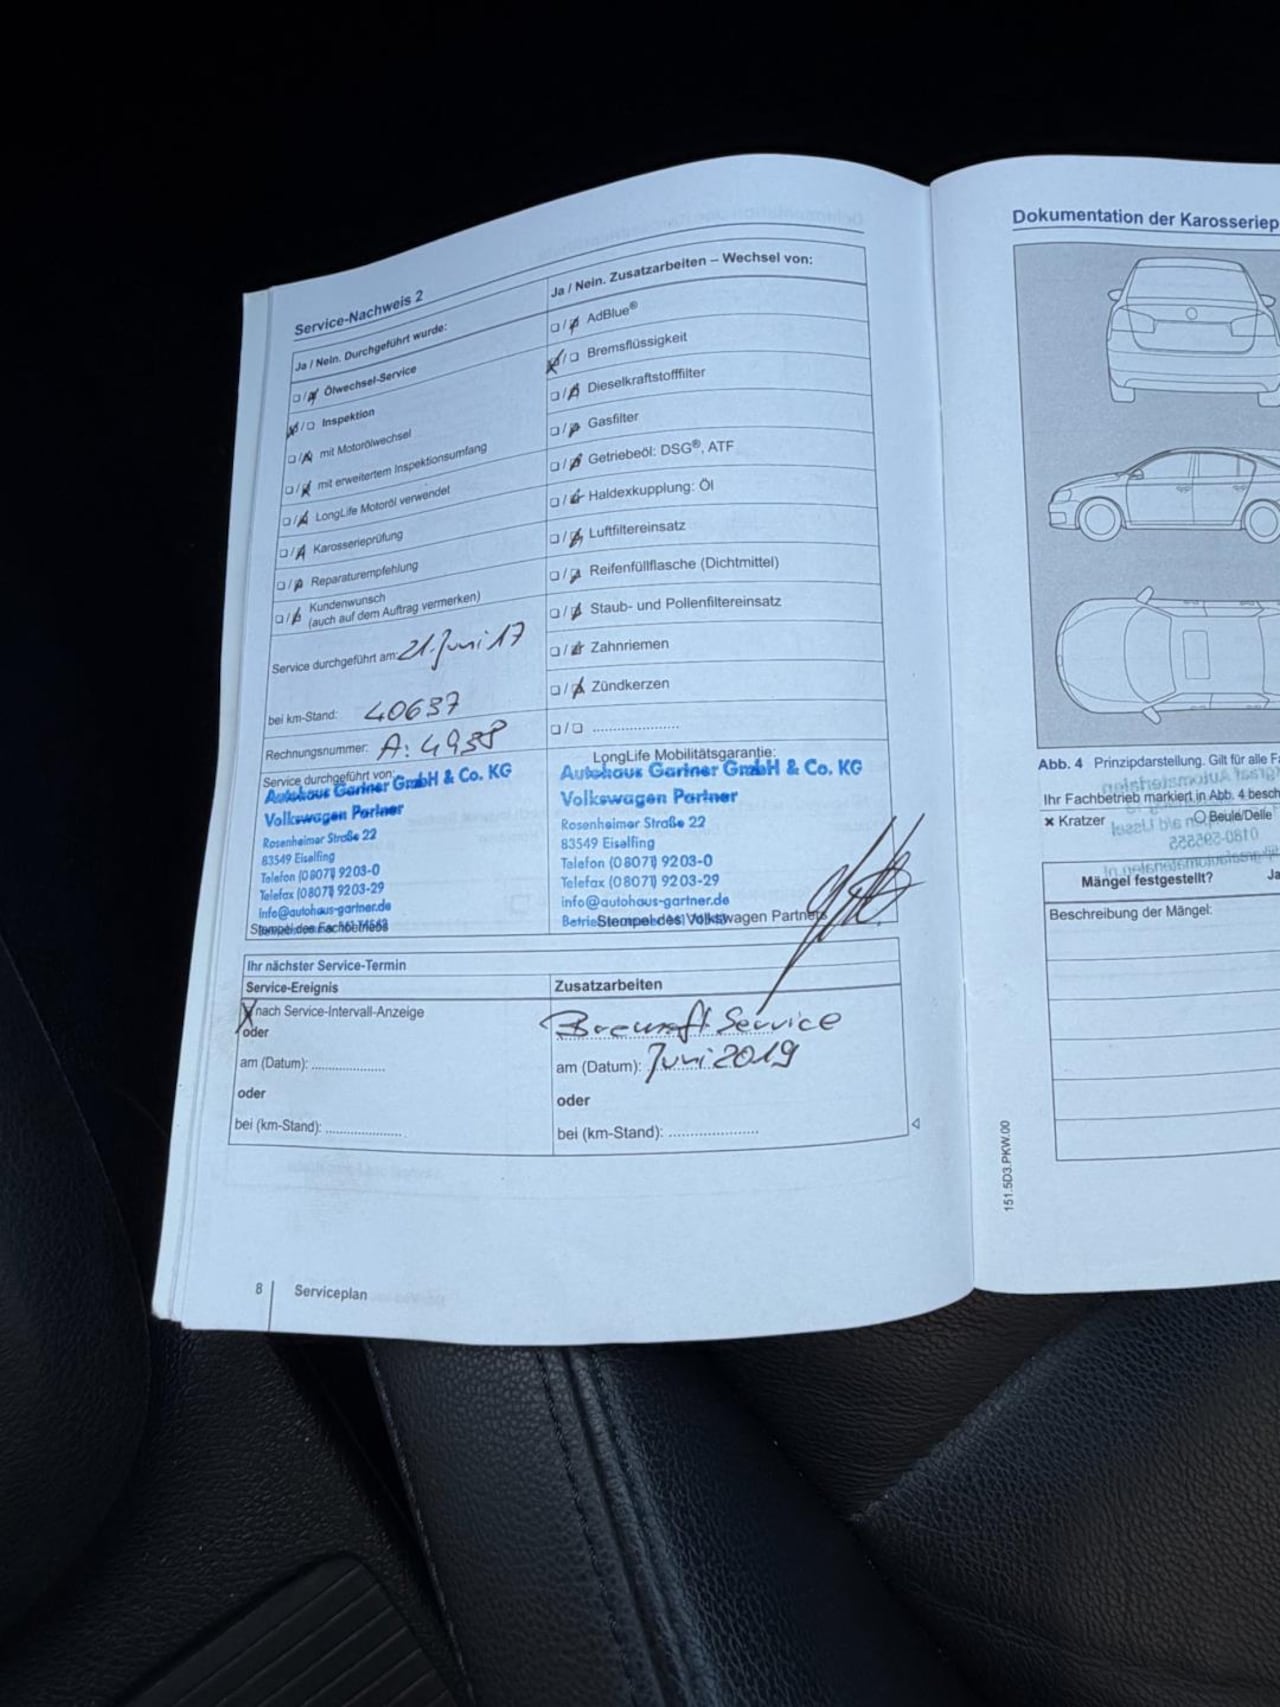 Service-Nachweis 2
Ja / Nein. Durchgeführt wurde:
❏ / ❏ Ölwechsel-Service
❏ / ❏ Inspektion
❏ / ❏ mit Motorölwechsel
❏ / ❏ mit erweitertem Inspektionsumfang
❏ / ❏ LongLife Motoröl verwendet
❏ / ❏ Karosserieprüfung
❏ / ❏ Reparaturempfehlung
❏ / ❏ Kundenwunsch
(auch auf dem Auftrag vermerken)
Service durchgeführt am: 21. Juni 17
bei km-Stand: 40637
Rechnungsnummer: A: 4938
Service durchgeführt von:
Autohaus Gartner GmbH & Co. KG
Volkswagen Partner
Rosenheimer Straße 22
83549 Eiselfing
Telefon (08071) 9203-0
Telefax (08071) 9203-29
info@autohaus-gartner.de
Stempel des Fachbetriebs
Ja / Nein. Zusatzarbeiten – Wechsel von:
❏ / ❏ AdBlue®
❏ / ❏ Bremsflüssigkeit
❏ / ❏ Dieselkraftstofffilter
❏ / ❏ Gasfilter
❏ / ❏ Getriebeöl: DSG®, ATF
❏ / ❏ Haldexkupplung: Öl
❏ / ❏ Luftfiltereinsatz
❏ / ❏ Reifenfüllflasche (Dichtmittel)
❏ / ❏ Staub- und Pollenfiltereinsatz
❏ / ❏ Zahnriemen
❏ / ❏ Zündkerzen
❏ / ❏ ....................
LongLife Mobilitätsgarantie:
Autohaus Gartner GmbH & Co. KG
Volkswagen Partner
Rosenheimer Straße 22
83549 Eiselfing
Telefon (08071) 9203-0
Telefax (08071) 9203-29
info@autohaus-gartner.de
Stempel des Volkswagen Partners
Ihr nächster Service-Termin
Service-Ereignis
X nach Service-Intervall-Anzeige
oder
am (Datum): ....................
oder
bei (km-Stand): ....................
Zusatzarbeiten
Service
am (Datum): Juni 2019
oder
bei (km-Stand): ....................
8 Serviceplan
Dokumentation der Karosseriep
Abb. 4 Prinzipdarstellung. Gilt für alle F
Ihr Fachbetrieb markiert in Abb. 4 besch
× Kratzer ○ Beule/Delle
Mängel festgestellt? Ja
Beschreibung der Mängel:
151.5D3.PKW.00